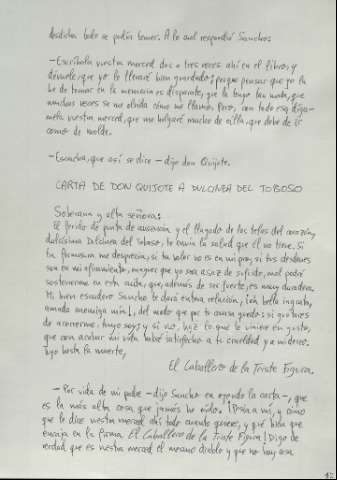 desdicha todo se podía temer. A lo cual respondió Sancho:
-Escríbala vuestra merced dos o tres veces ahí en el libro, y
démele, que yo le llevaré bien guardado; porque pensar que yo la
he de tomar en la memoria es disparate, que la tengo tan mala, que
muchas veces se me olvida cómo me llamo. Pero, con todo eso, díga-
mela vuestra merced, que me holgaré mucho de oílla, que debe de ir
como de molde.
-Escucha, que así se dice -dijo don Quijote.
CARTA DE DON QUIJOTE A DULCINEA DEL TOBOSO
Soberana y alta señora:
El ferido de punta de ausencia y el llagado de las telas del corazón,
dulcísima Dulcinea del Toboso, te envía la salud que él no tiene. Si
tu fermosura me desprecia, si tu valor no es en mi pro, si tus desdenes
son en mi afincamiento, maguer que yo sea asaz de sufrido, mal podré
sostenerme en esta cuita, que, además de ser fuerte, es muy duradera.
Mi buen escudero Sancho te dará entera relación, ¡oh bella ingrata,
amada enemiga mía!, del modo que por tu causa quedo: si gustares
de acorrerme, tuyo soy; y si no, haz lo que te viniere en gusto,
que con acabar mi vida habré satisfecho a tu crueldad y a mi deseo.
Tuyo hasta la muerte,
El Caballero de la Triste Figura.
-Por vida de mi padre -dijo Sancho en oyendo la carta-, que
es la más alta cosa que jamás he oído. ¡Pesia a mí, y cómo
que le dice vuestra merced ahí todo cuanto quiere, y qué bien que
encaja en la firma El Caballero de la Triste Figura! Digo de
verdad que es vuestra merced el mesmo diablo y que no hay cosa